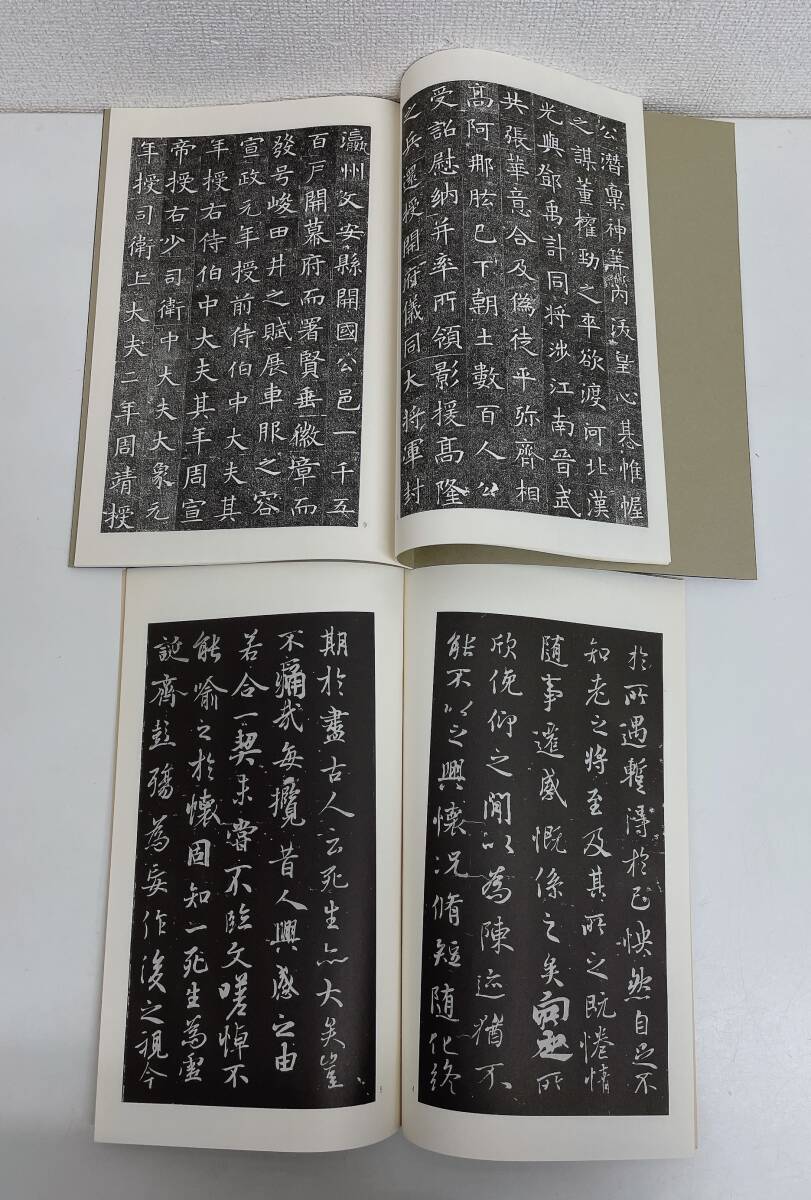 公潛稟神筭內沃皇心基惟幄
之謀董櫂勁之卒欲渡河北漢
光與鄧禹計同將涉江南晉武
共張華意合及偽徒平殄齊相
高阿那肱已下朝士數百人公
受詔慰納并率所領影援高隆
之兵還授開府儀同大將軍封
瀛州文安縣開國公邑一千五
百戶開幕府而署賢垂徽章而
發号峻田井之賦展車服之容
宣政元年授前侍伯中大夫其
年授右侍伯中大夫其年周宣
帝授右少司衛中大夫大象元
年授司衛上大夫二年周靖授
9
於所遇暫得於己怏然自足不
知老之將至及其所之既惓情
隨事遷感慨係之矣向之所
欣俛仰之間以為陳迹猶不
能不以之興懷況脩短隨化終
期於盡古人云死生亦大矣豈
不痛哉每攬昔人興感之由
若合一契未嘗不臨文嗟悼不
能喻之於懷固知一死生為虛
誕齊彭殤為妄作後之視今